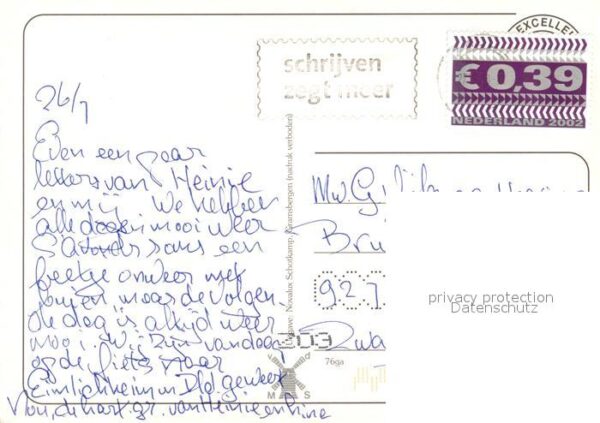 EXCELLE
schrijven
zegt meer
€ 0,39
NEDERLAND 2002
26/7
Even een paar
letters van Heinie
en mij. We hebben
alle dagen mooi weer
S'avonds soms een
beetje onweer met
buien maar de volgen-
de dag is altijd weer
mooi. Wij zijn vandaag
op de fiets naar
Emlichheim in Dld geweest
Nou, de hart. gr. van Heinie en Line
Uitgave: Novalux Schutkamp, Gramsbergen (nadruk verboden)
Mw. G.
Bru
92.7
203
Zwa
76ga
M S
privacy protection
Datenschutz